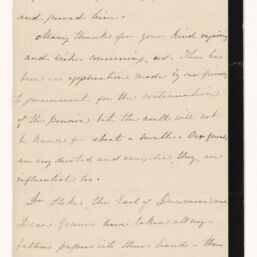 and grieved him.
Many thanks for your kind enquiry
and wishes concerning us. There has
been an application made by our friends
to government for the continuation
of the pension but the result will not
be known for about a month. Our friends
are very devoted and energetic, they are
influential too.
Dr Stokes, the Earl of Dunraven and
Dean Graves have taken all my
fathers papers into their hands - them